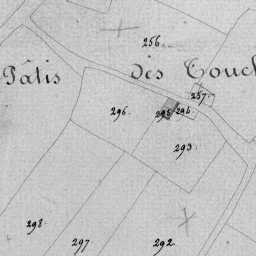 256
Pâtis des Touch
257
296 295 294
293
298
297 292